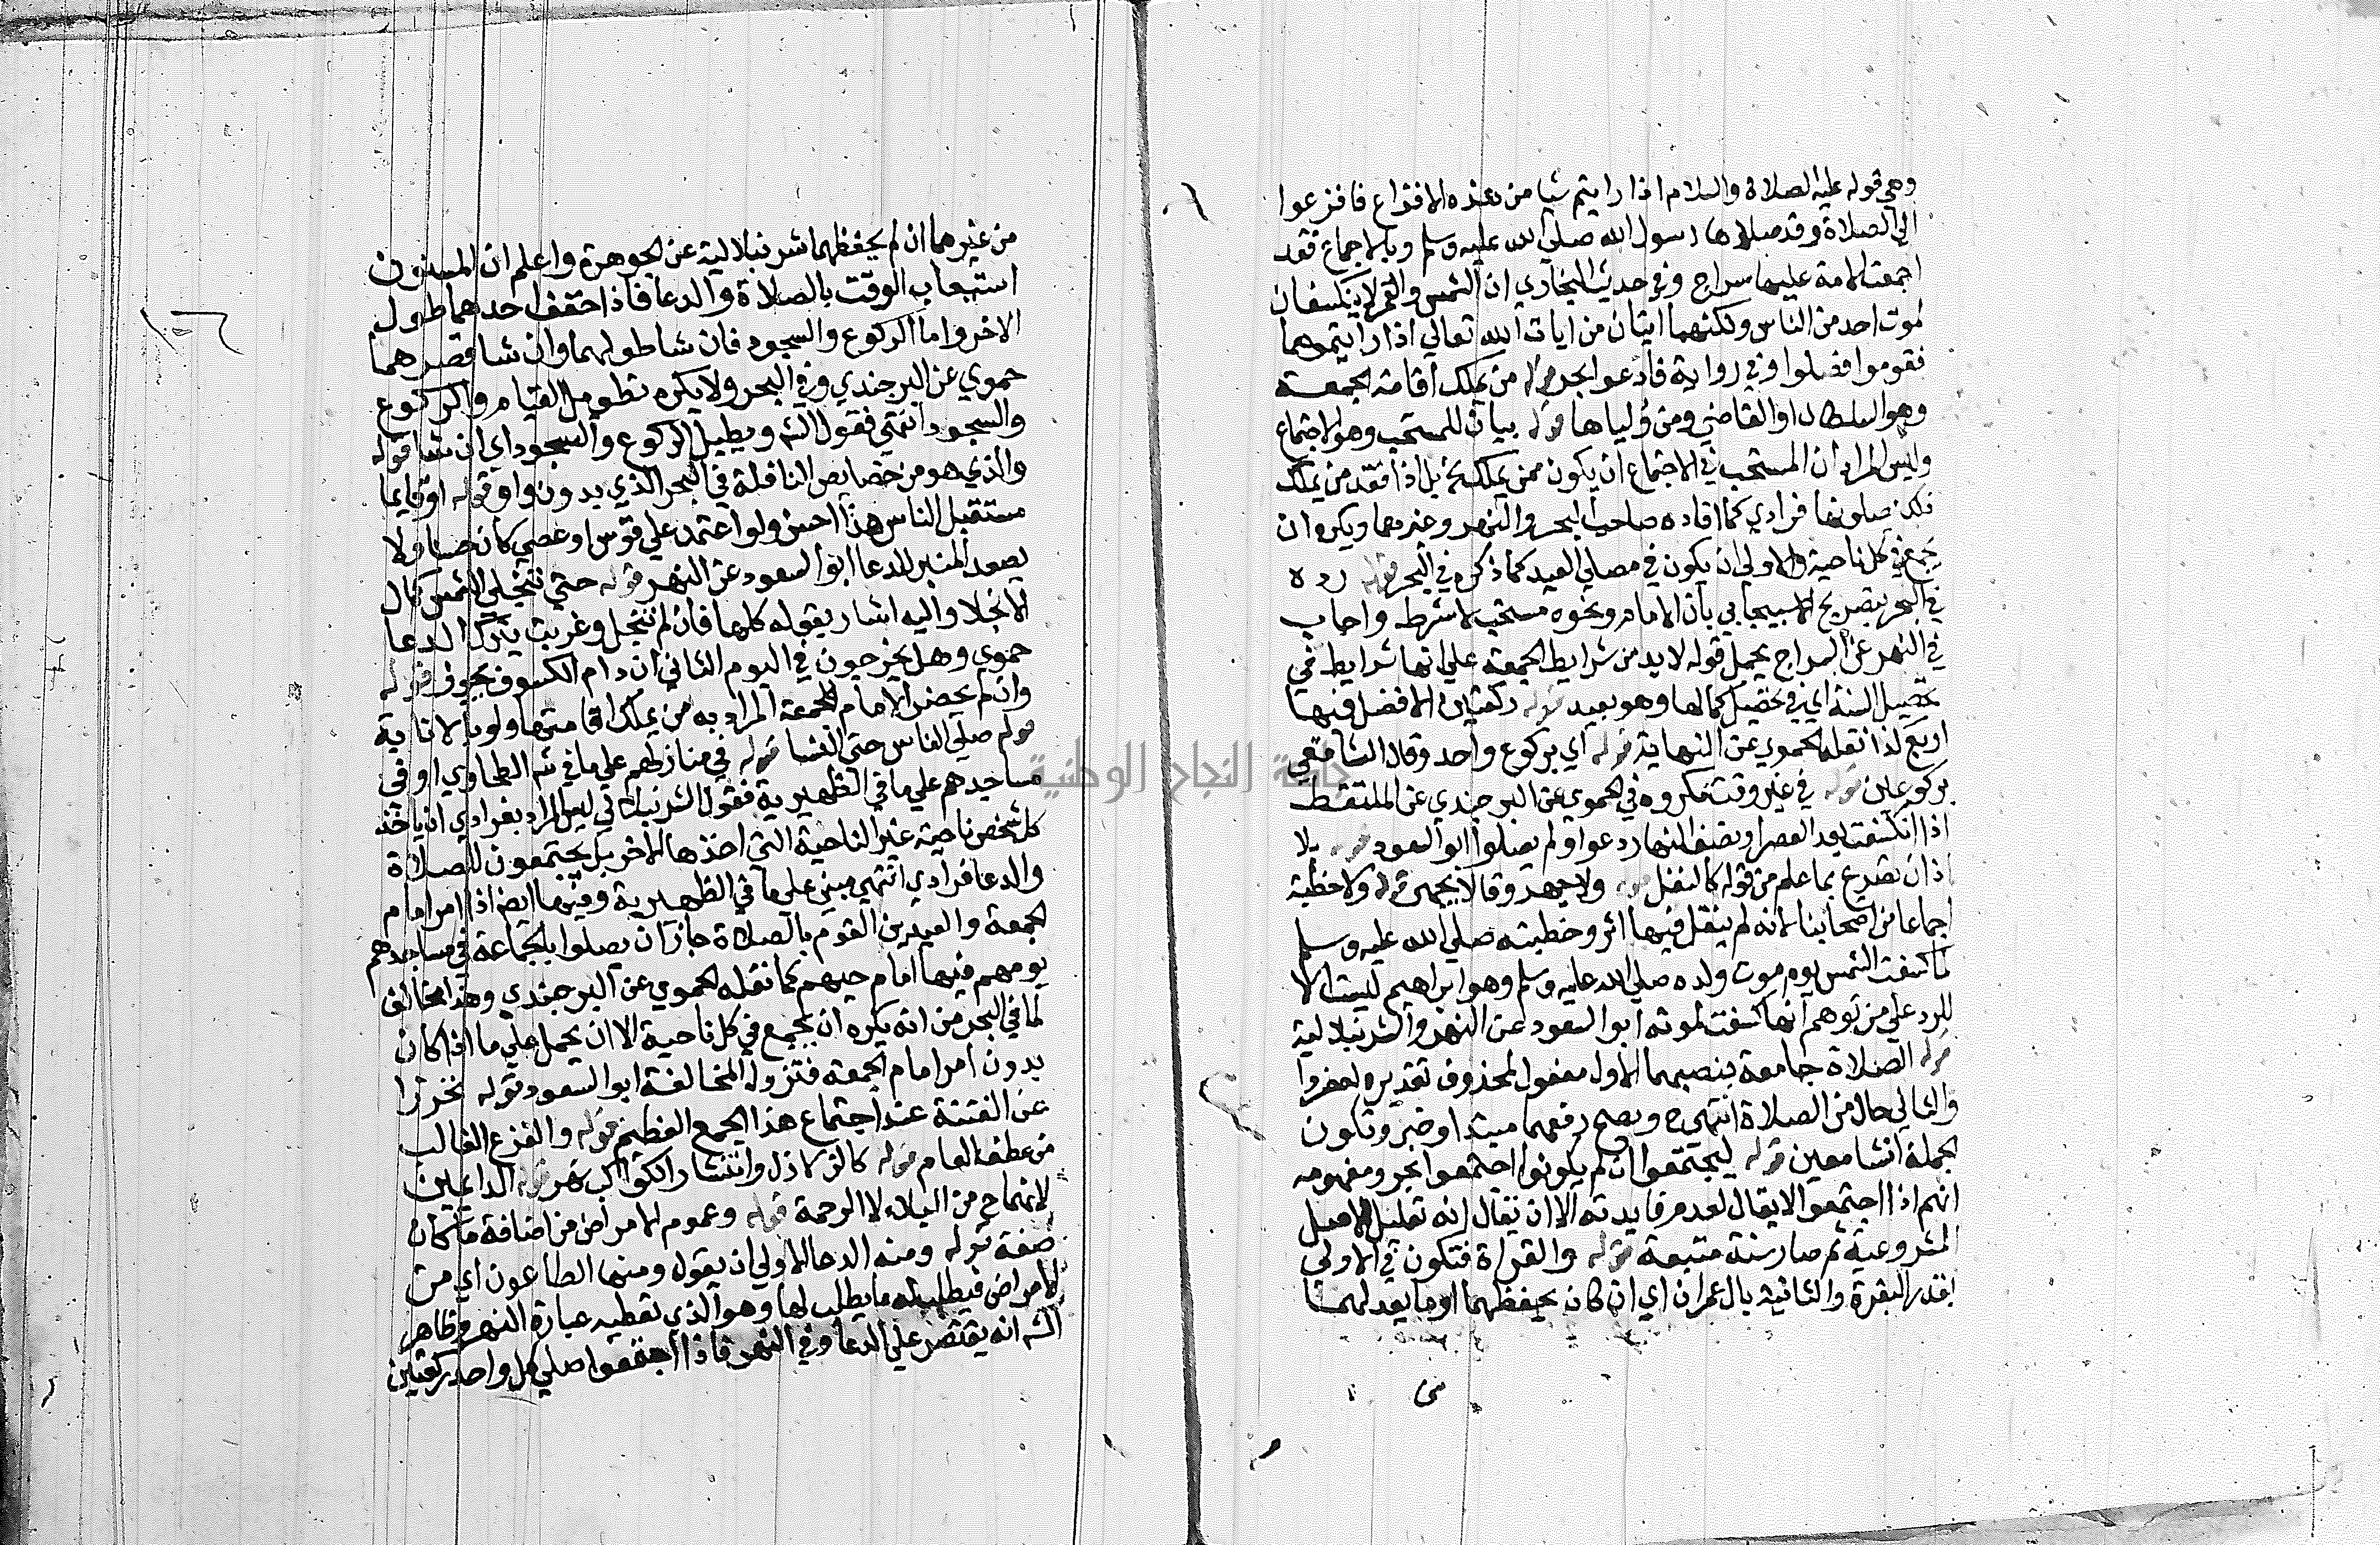 وهي قوله عليه الصلاة والسلام اذا رايتم شيا من هذه الافزاع فافزعوا
الي الصلاة وقد صلاها رسول الله صلي الله عليه وسلم وبالاجماع فقد
اجمعت الامة عليها سراج وفي حديث البخاري ان الشمس والقمر لا ينكسفان
لموت احد من الناس ولكنهما ايتان من ايات الله تعالي اذا رايتموهما
فقوموا فصلوا وفي رواية فادعوا بحر قوله من يملك اقامة الجمعة
وهو السلطان او القاضي ومن وليا ها قوله بيان للمستحب وهو الاجتماع
وليس المراد ان المستحب في الاجتماع ان يكون ممن يملك بل اذا فقد من يملك
ذلك صلوها فرادي كما افاده صاحب البحر والنهر وغيرهما ويكره ان
يجمع في كل ناحية والاولي ان يكون في مصلي العيد كما ذكره في البحر قوله رده
في البحر بتصريح الاسبيجابي بان الامام ونحوه مستحب لا شرط واجاب
في النهر عن السراج بحمل قوله لا بد من شرايط الجمعة علي انها شرايط في
تحصيل السنة اي في تحصيل كمالها وهو بعيد قوله ركعتين الافضل فيها
اربع كذا نقله الحموي عن النهاية قوله اي بركوع واحد وقال الشافعي
بركوعين قوله في غير وقت مكروه في الحموي عن البرجندي عن الملتقط
اذا انكسفت بعد العصر او نصف النهار دعوا ولم يصلوا ابو السعود قوله بلا
اذان تصريح بما علم من قوله كالنفل قوله ولا جهر وقالا يجهر قوله ولا خطبة
اجماعا من اصحابنا لانه لم ينقل فيها اثر وخطبته صلي الله عليه وسلم
لما كسفت الشمس يوم موت ولده صلي الله عليه وسلم وهو ابراهيم ليست الا
للرد علي من توهم انها كسفت لموته ابو السعود عن النهر والشرنبلالية
قوله الصلاة جامعة بنصبهما الاول مفعول لمحذوف تقديره احضروا
والثاني حال من الصلاة انتهي ح ويصح رفعهما مبتدا وخبر وتكون
الجملة انشا معين قوله ليجتمعوا ان لم يكونوا اجتمعوا بحر ومفهومه
انهم اذا اجتمعوا لا يقال لعدم فايدته الا ان يقال انه تعليل لاصل
المشروعية ثم صار سنة متبعة قوله والقراة فتكون في الاولي
بقدر البقرة والثانية بال عمران اي ان كان يحفظهما او ما يعدلهما
من غيرهما ان لم يحفظهما شرنبلالية عن الجوهرة واعلم ان المسنون
استيعاب الوقت بالصلاة والدعا فاذا خفف احدهما طول
الاخر واما الركوع والسجود فان شا طولهما وان شا قصرهما
حموي عن البرجندي وفي البحر ولا يكره تطويل القيام والركوع
والسجود انتهي فقول الشم ويطيل الركوع والسجود اي ان شا قوله
والذي هو من خصايص النافلة في البحر الذي بدون واو قوله او قايما
مستقبل الناس هذا احسن ولو اعتمد علي قوس او عصي كان حسنا ولا
يصعد المنبر للدعا ابو السعود عن النهر قوله حتي تنجلي الشمس كمال
الانجلا واليه اشار بقوله كلها فان لم تنجل وغربت يترك الدعا
حموي وهل يخرجون في اليوم الثاني ان دام الكسوف يحرر قوله
وان لم يحضر الامام للجمعة المراد به من يملك اقامتها ولو بالانابة
قوله صلي الناس حتي النسا قوله في منازلهم علي ما في شم الطحاوي او في
مساجدهم علي ما في الظهيرية فقول الشرنبلالي ليس المراد بفرادي ان ياخذ
كل شخص ناحية غير الناحية التي اخذها الاخر بل يجتمعون للصلاة
والدعا فرادي انتهي مبني علي ما في الظهيرية وفيها ايضا اذا امر امام
الجمعة والعيدين القوم بالصلاة جاز ان يصلوا بالجماعة في مساجدهم
يومهم فيها امام حيهم كما نقله الحموي عن البرجندي وهذا مخالف
لما في البحر من انه يكره ان يجمع في كل ناحية الا ان يحمل علي ما اذا كان
بدون امر امام الجمعة فتزول المخالفة ابو السعود قوله تحرزا
عن الفتنة عند اجتماع هذا الجمع العظيم قوله والفزع الغالب
من عطف العام قوله كالزلازل وانتشار الكواكب نهر قوله الدايمين
لانهما ح من البلاء لا الرحمة قوله وعموم الامراض من اضافة ما كان
صفة قوله ومنه الدعا الاولي ان يقول ومنها الطاعون اي من
الامراض فيطلب له ما يطلب لها وهو الذي تعطيه عبارة النهر وظاهر
الشم انه يقتصر علي الدعا وفي النهر فاذا اجتمعوا صلي كل واحد ركعتين
جامعة النجاح الوطنية